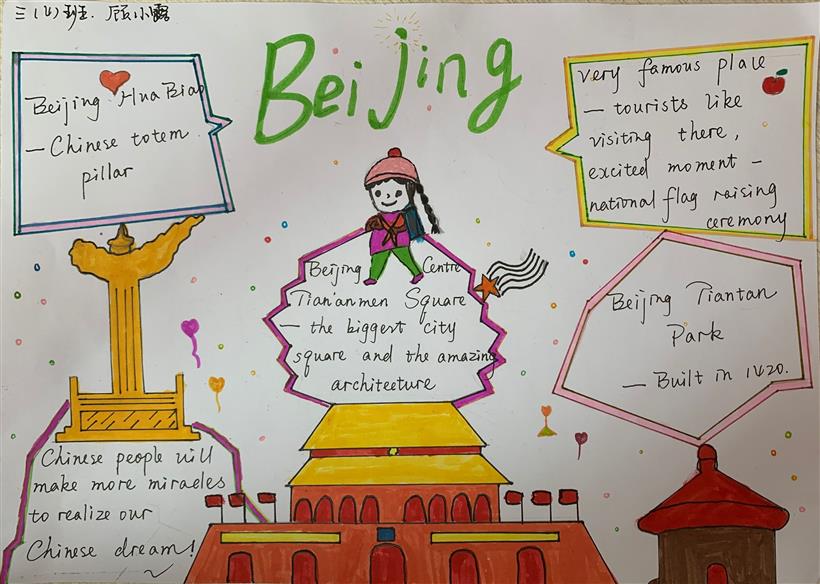 三(4)班. 顾小露
Beijing
Beijing HuaBiao
— Chinese totem
pillar
very famous place
— tourists like
visiting there,
excited moment —
national flag raising
ceremony
Beijing Centre
Tian'anmen Square
— the biggest city
square and the amazing
architecture
Beijing Tiantan
Park
— Built in 1420.
Chinese people will
make more miracles
to realize our
Chinese dream!